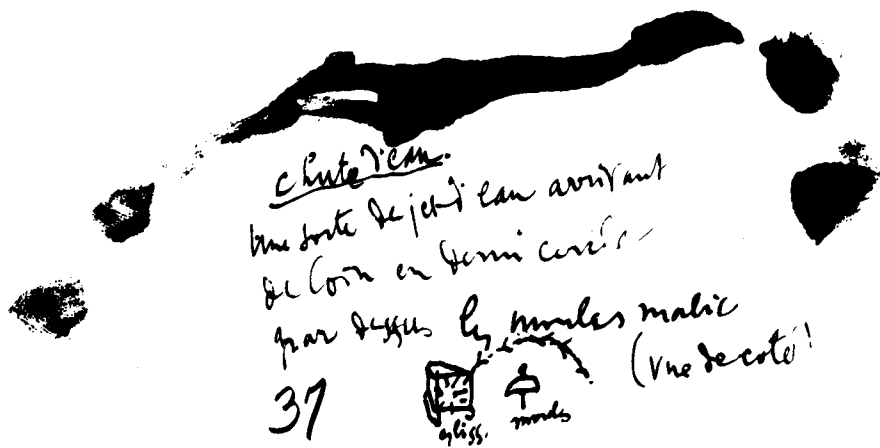 chute d'eau.
une sorte de jet d'eau arrivant
de loin en demi cercle
par dessus les moules malic
(vue de coté)
37
gliss. moules